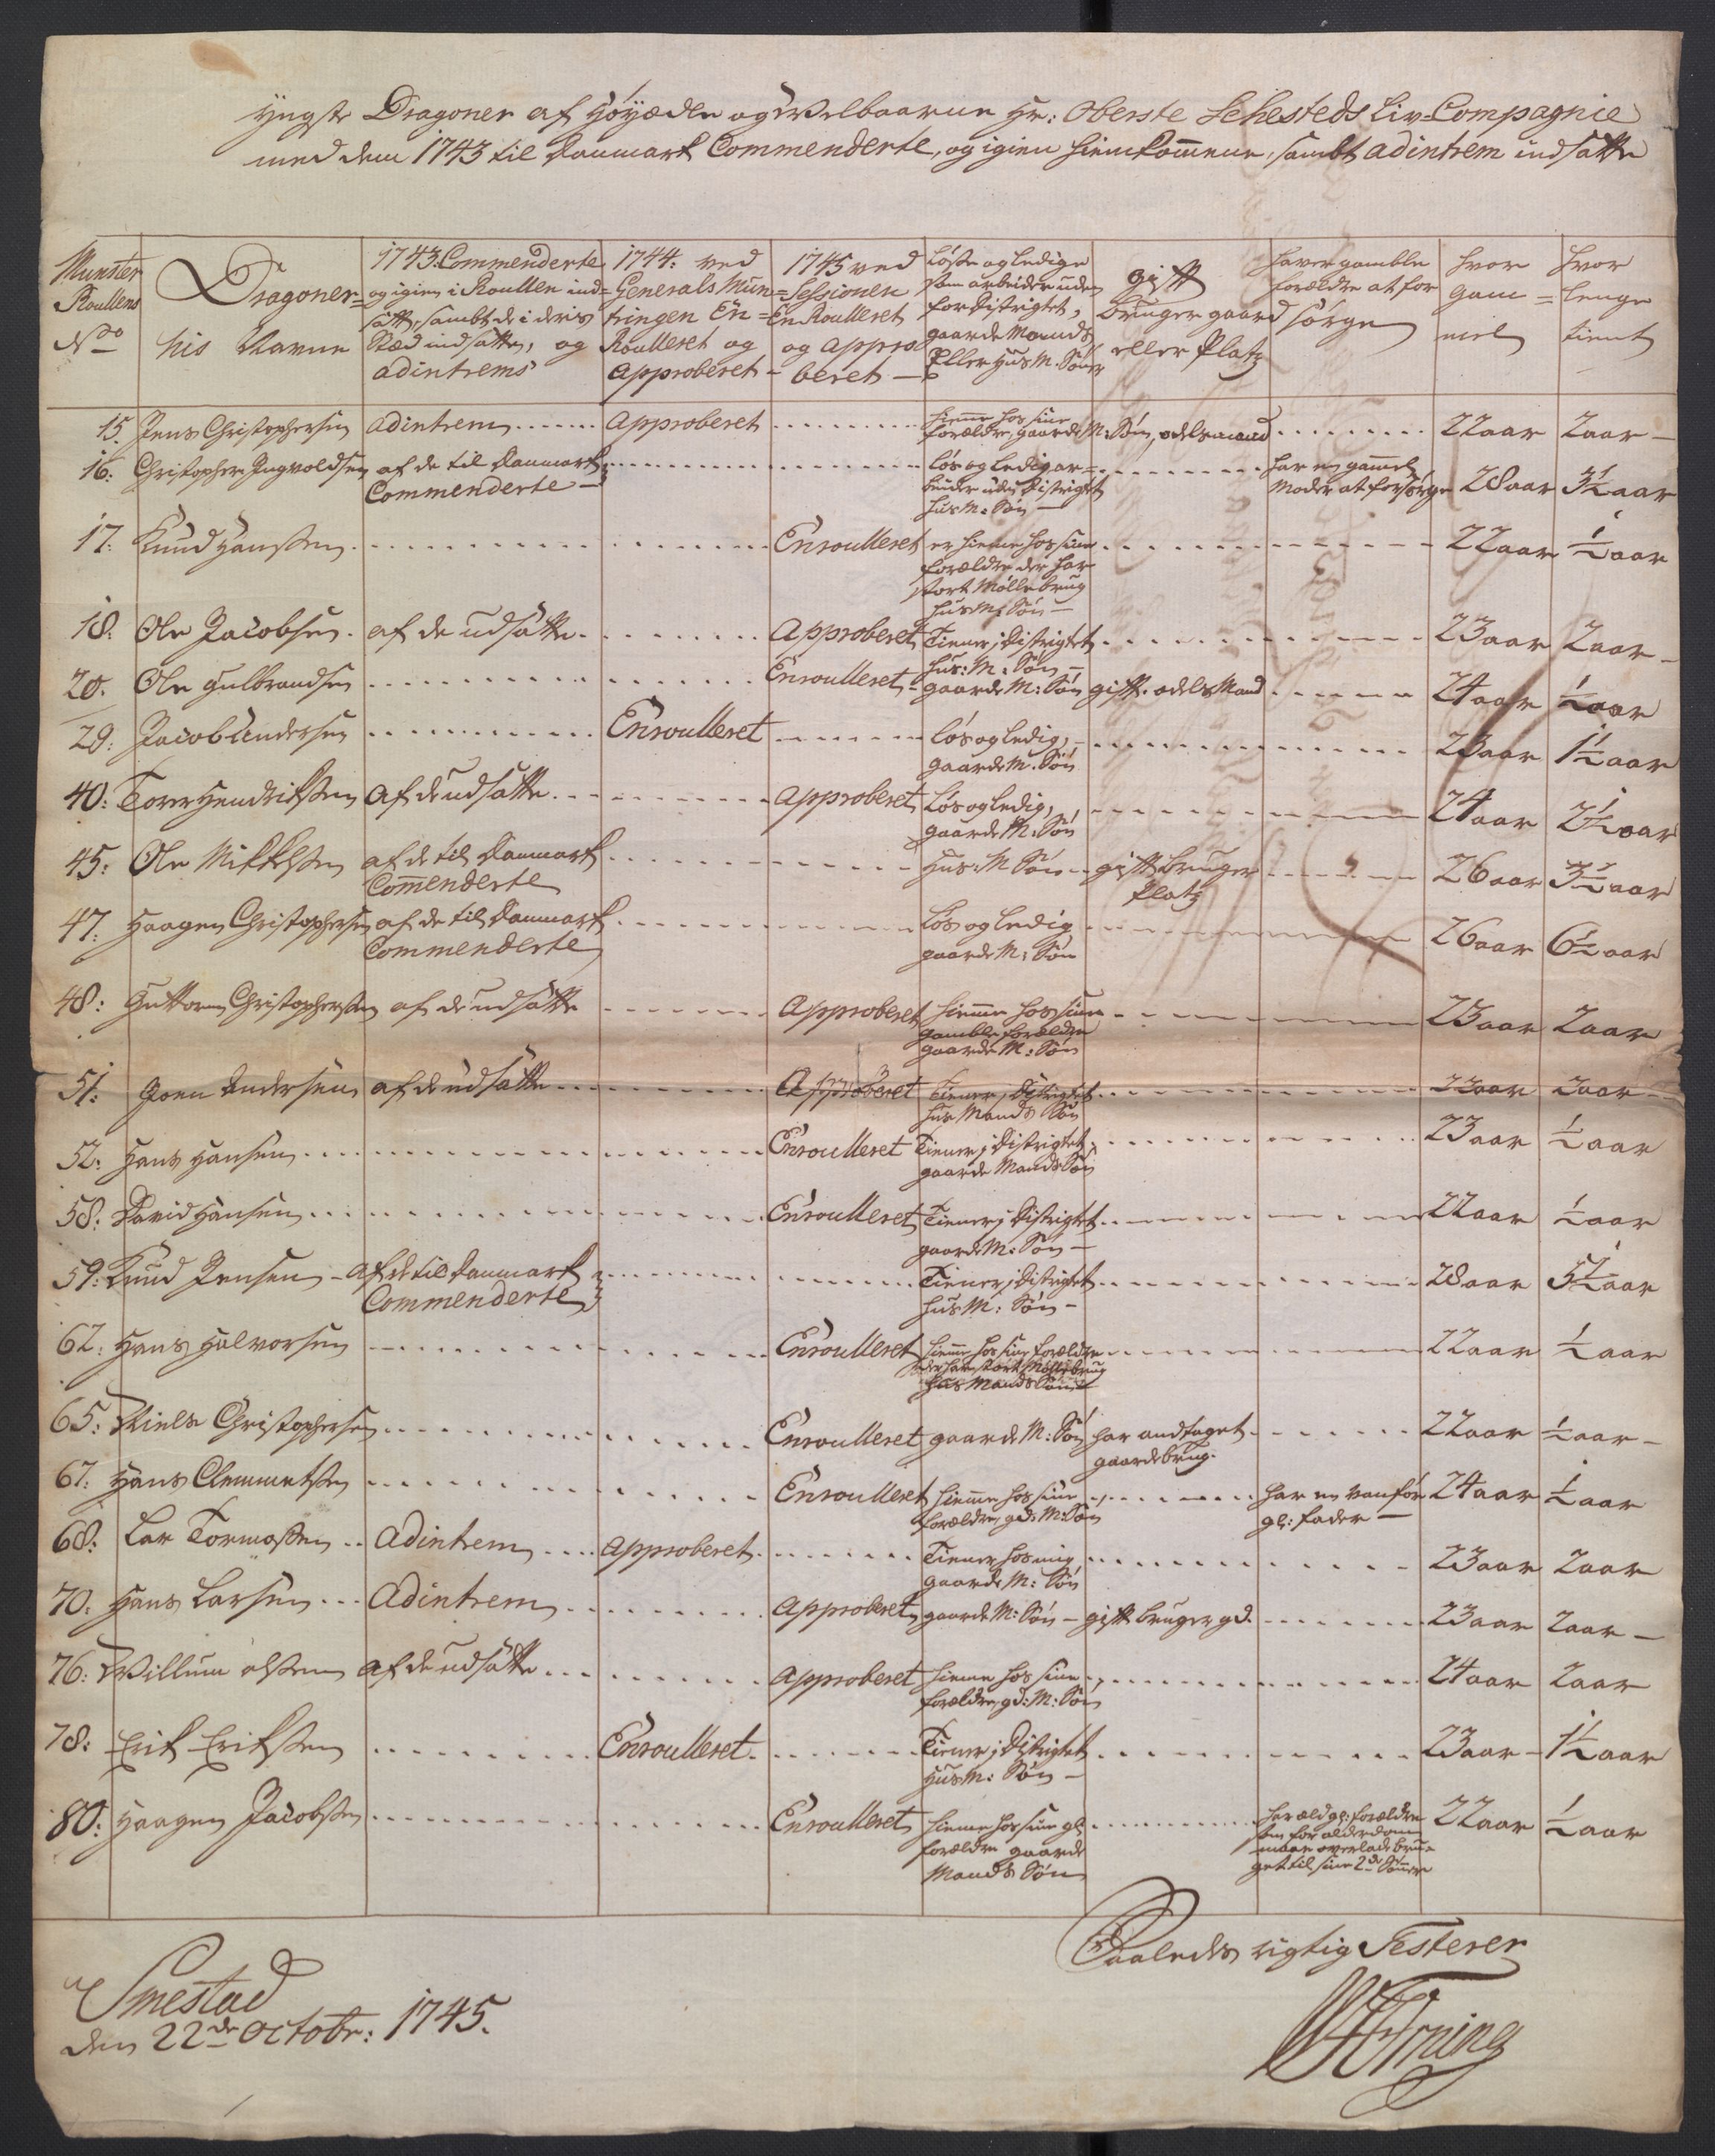 yngste Dragoner af Höyædle og Welbaarne Hr: Oberste Sehesteds Liv=Compagnie
med dem 1743 til Danmark Commenderte, og igien hiemkommene, sambt adintrem indsatte
Munster Roullens No
Dragoner= nis Navne
1743 Commenderte og igien i Roullen ind= satte, sambt de i deris Stæd indsatte, og adintrems
1744: ved Generals Mün= stringen En= Roulleret og Approberet -
1745 ved Sessionen En Roulleret og appro beret -
Løse og ledige som arbeider uden for Distrigtet, gaarde Mands Eller Hus M: Sönner
gift bruger gaard eller Platz
haver gamble forældre at for sörge
hvor gam= mel
hvor lenge tient
15. Jens Christophersen adintrem ...... Approberet ......... hiemme hos sine forældre, gaarde M: Sön, odelsmand ........ 22 aar 2 aar -
16: Christopher Ingvoldsen af de til Danmark Commenderte - ......... lös og ledig ar= beider uden Distrigtet hus M: Sön - ......... har en gammel Moder at forsörge 28 aar 3½ aar
17: Knud Hanssen ......... Enroulleret er hieme hos sine forældre der har stort Möllebrug hus M: Sön - ......... 22 aar ½ aar
18: Ole Jacobsen. af de udsatte ......... Approberet Tiener i Distrigtet hus: M: Sön - ......... 23 aar 2 aar -
20. Ole Gulbrandsen ......... Enroulleret - gaarde M: Sön gift. odels Mand ...... 24 aar ½ aar
29: Jacob Andersen ......... Enroulleret ...... lös og ledig, gaarde M. Sön ......... 23 aar 1½ aar
40: Tore Hendrikssen af de udsatte ......... Approberet Lös og ledig, gaarde M: Sön ......... 24 aar 2½ aar
45: Ole Mikkelsen af de til Danmark Commenderte ......... Hus: M Sön - gift bruger Platz ...... 26 aar 3½ aar
47: Haagen Christophersen af de til Danmark Commenderte ......... Lös og ledig gaarde M: Sön ......... 26 aar 6½ aar
48: Guttorm Christophersen af de udsatte ...... Approberet hieme hos sine gamble forældre gaarde M: Sön ......... 23 aar 2 aar
51: Joen Andersen af de udsatte ......... Approberet Tiener i Distrigtet hus Mands Sön ......... 22 aar 2 aar -
52: Hans Hansen ......... Enroulleret Tiener i Distrigtet gaarde Mands Sön ......... 23 aar ½ aar
58: David Hansen ......... Enroulleret Tiener i Distrigtet gaarde M: Sön - ......... 22 aar ½ aar
59: Knud Jensen - af de til Danmark Commenderte ......... Tiener i Distrigtet hus M: Sön - ......... 28 aar 5½ aar
62: Hans Halvorsen ......... Enroulleret hieme hos sine forældre der har stort Möllebrug hus Mands Sön ......... 22 aar ½ aar
65: Niels Christophersen ......... Enroulleret gaarde M: Sön har andtaget gaardebrug. ...... 22 aar ½ aar -
67: Hans Clemmetsen ......... Enroulleret hieme hos sine forældre, gd: M: Sön ...... har en vanför gl: fader - 24 aar ½ aar
68: Lar Tormossen .. adintrem .... Approberet ......... Tiener hos mig gaarde M: Sön ......... 23 aar 2 aar
70: Hans Larsen ... adintrem ......... Approberet gaarde M: Sön - gift bruger gd. ...... 23 aar 2 aar -
76: Willum Olssen af de udsatte ......... Approberet hieme hos sine forældre, gd: M: Sön ......... 24 aar 2 aar
78: Erik Erikssen ......... Enroulleret ......... Tiener i Distrigtet Hus M: Sön - ......... 23 aar - 1½ aar
80: Haagen Jacobsen ......... Enroulleret hieme hos sine gl forældre gaarde Mands Sön ......... har æld gl: forældre som for alderdom maae overlade bru= get til sine 2de Sönner 22 aar ½ aar
Saaledes rigtig Testerer
Smestad
den 22de Octobr: 1745.